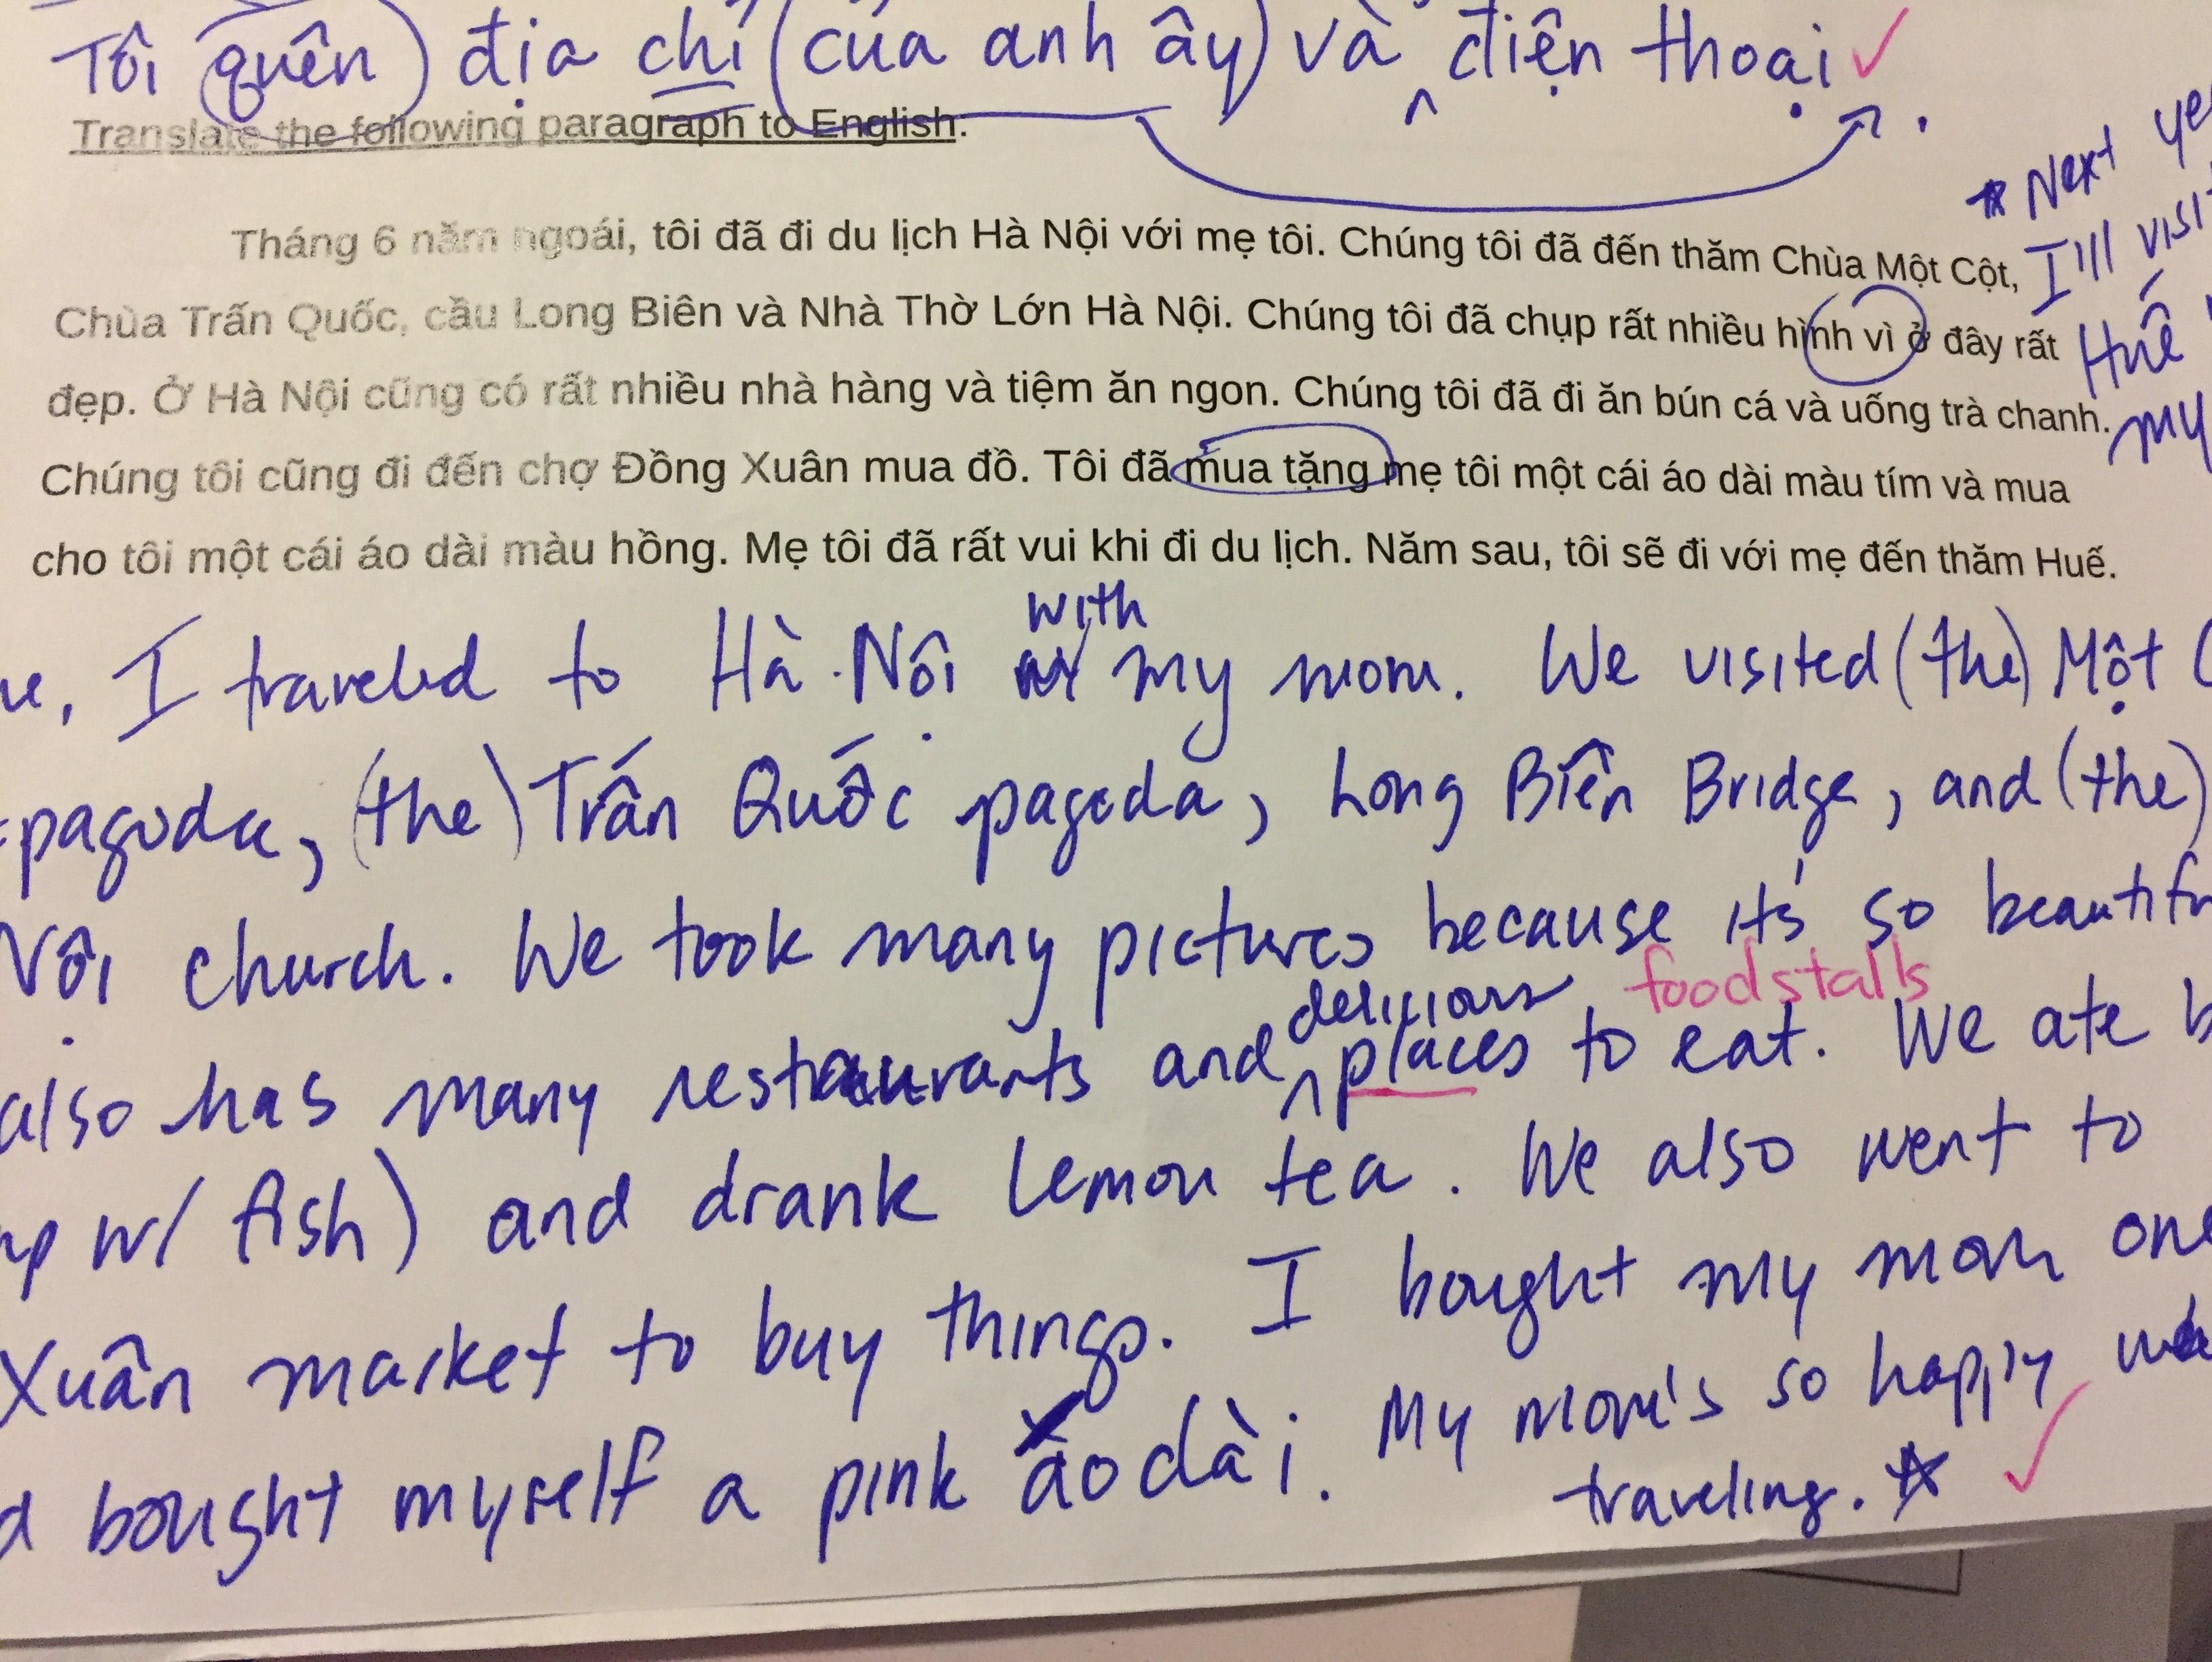 Tôi quên địa chỉ (của anh ây) và điện thoại.
Translate the following paragraph to English.
Tháng 6 năm ngoái, tôi đã đi du lịch Hà Nội với mẹ tôi. Chúng tôi đã đến thăm Chùa Một Cột,
Chùa Trấn Quốc, cầu Long Biên và Nhà Thờ Lớn Hà Nội. Chúng tôi đã chụp rất nhiều hình vì ở đây rất
đẹp. Ở Hà Nội cũng có rất nhiều nhà hàng và tiệm ăn ngon. Chúng tôi đã đi ăn bún cá và uống trà chanh.
Chúng tôi cũng đi đến chợ Đồng Xuân mua đồ. Tôi đã mua tặng mẹ tôi một cái áo dài màu tím và mua
cho tôi một cái áo dài màu hồng. Mẹ tôi đã rất vui khi đi du lịch. Năm sau, tôi sẽ đi với mẹ đến thăm Huế.
* Next
I'll visit
Huế
my
with
I traveled to Hà Nội my mom. We visited (the) Một
pagoda, (the) Trấn Quốc pagoda, Long Biên Bridge, and (the)
Nội church. We took many pictures because it's so
foodstalls
delicious
also has many restaurants and places to eat. We ate
w/ fish) and drank lemon tea. We also went to
Xuân market to buy things. I bought my mom
bought myself a pink áo dài. My mom's so happy
traveling. *